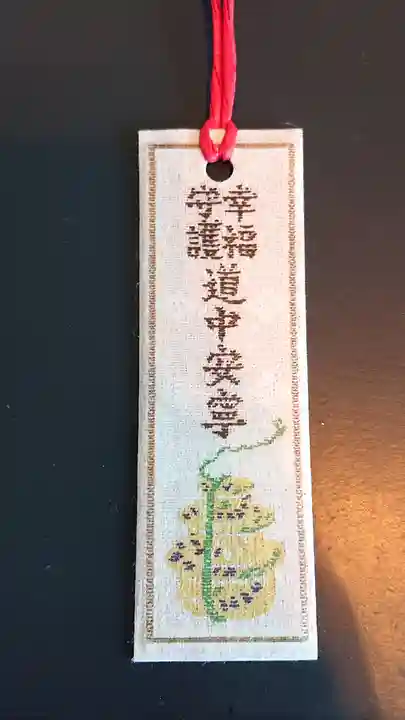 幸福
守護
道中安御